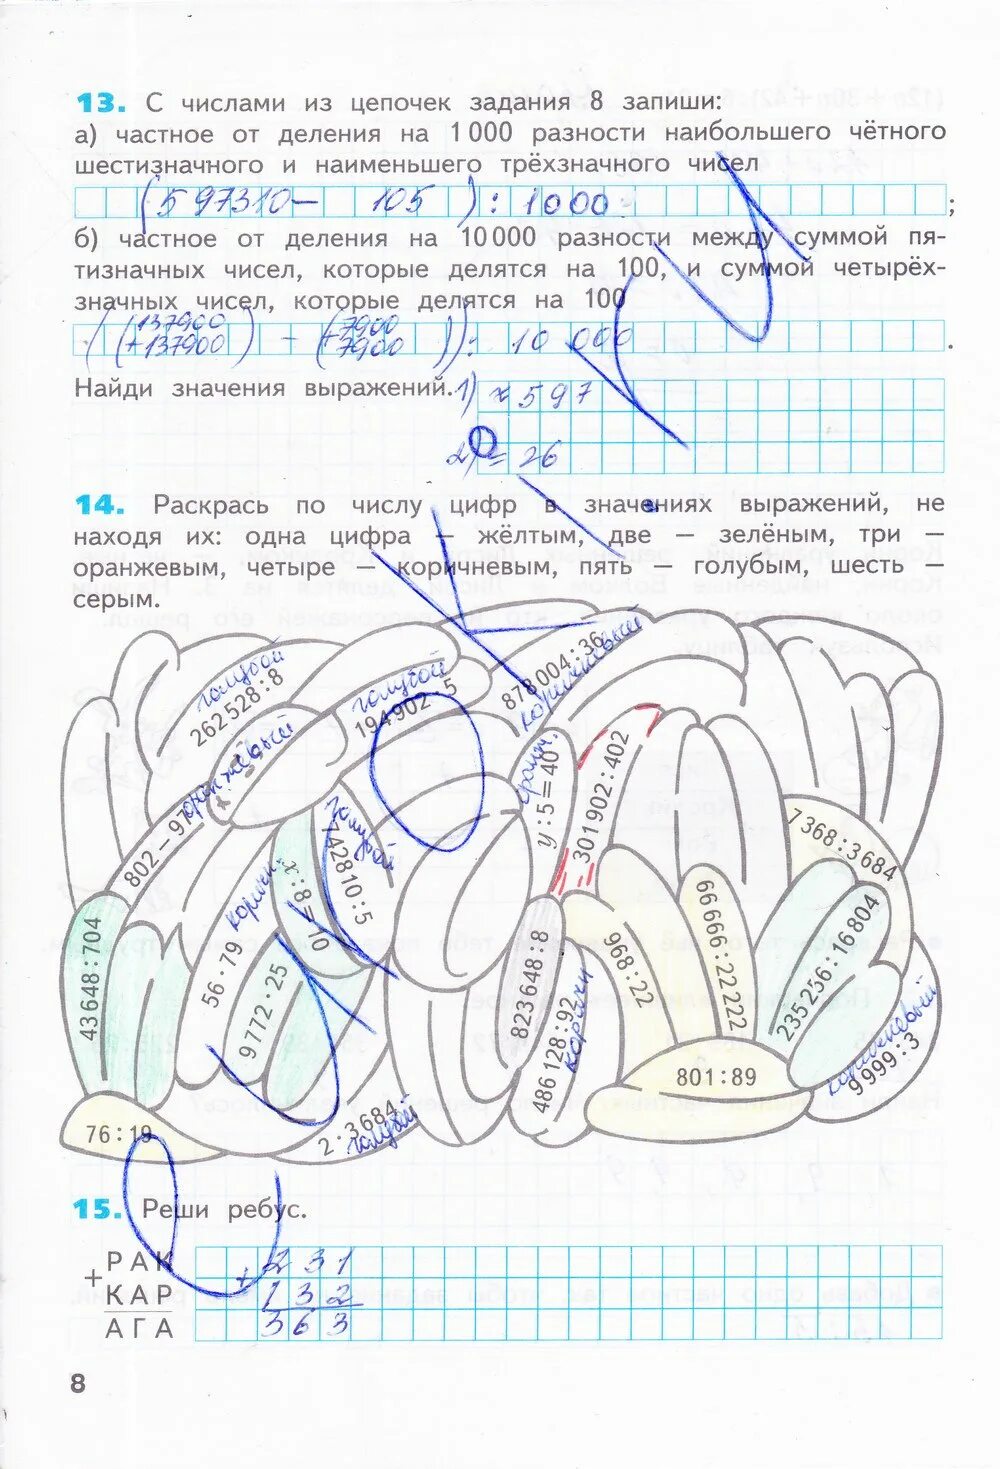 13. С числами из цепочек задания 8 запиши:
а) частное от деления на 1 000 разности наибольшего чётного
шестизначного и наименьшего трёхзначного чисел
(597310 − 105) : 1000 ;
б) частное от деления на 10 000 разности между суммой пя-
тизначных чисел, которые делятся на 100, и суммой четырёх-
значных чисел, которые делятся на 100
((137900 + 137900) − (7900 + 7900)) : 10 000 .
Найди значения выражений. 1) ≈ 597
2) = 26
14. Раскрась по числу цифр в значениях выражений, не
находя их: одна цифра — жёлтым, две — зелёным, три —
оранжевым, четыре — коричневым, пять — голубым, шесть —
серым.
голубой
262528 : 8
голубой
194902 · 5
878004 : 36
коричневый
оранжевый
802 − 97
голубой
742810 : 5
оранж.
у : 5 = 40
301902 : 402
7368 : 3684
43648 : 704
коричн.
56 · 79
х : 8 = 10
9772 · 25
823648 : 8
968 : 22
66666 : 22222
235256 : 16804
486128 : 92
коричн
801 : 89
коричневый
9999 : 3
76 : 19
2 · 3684
голубой
15. Реши ребус.
+ РАК + 231
КАР 132
АГА 363
8